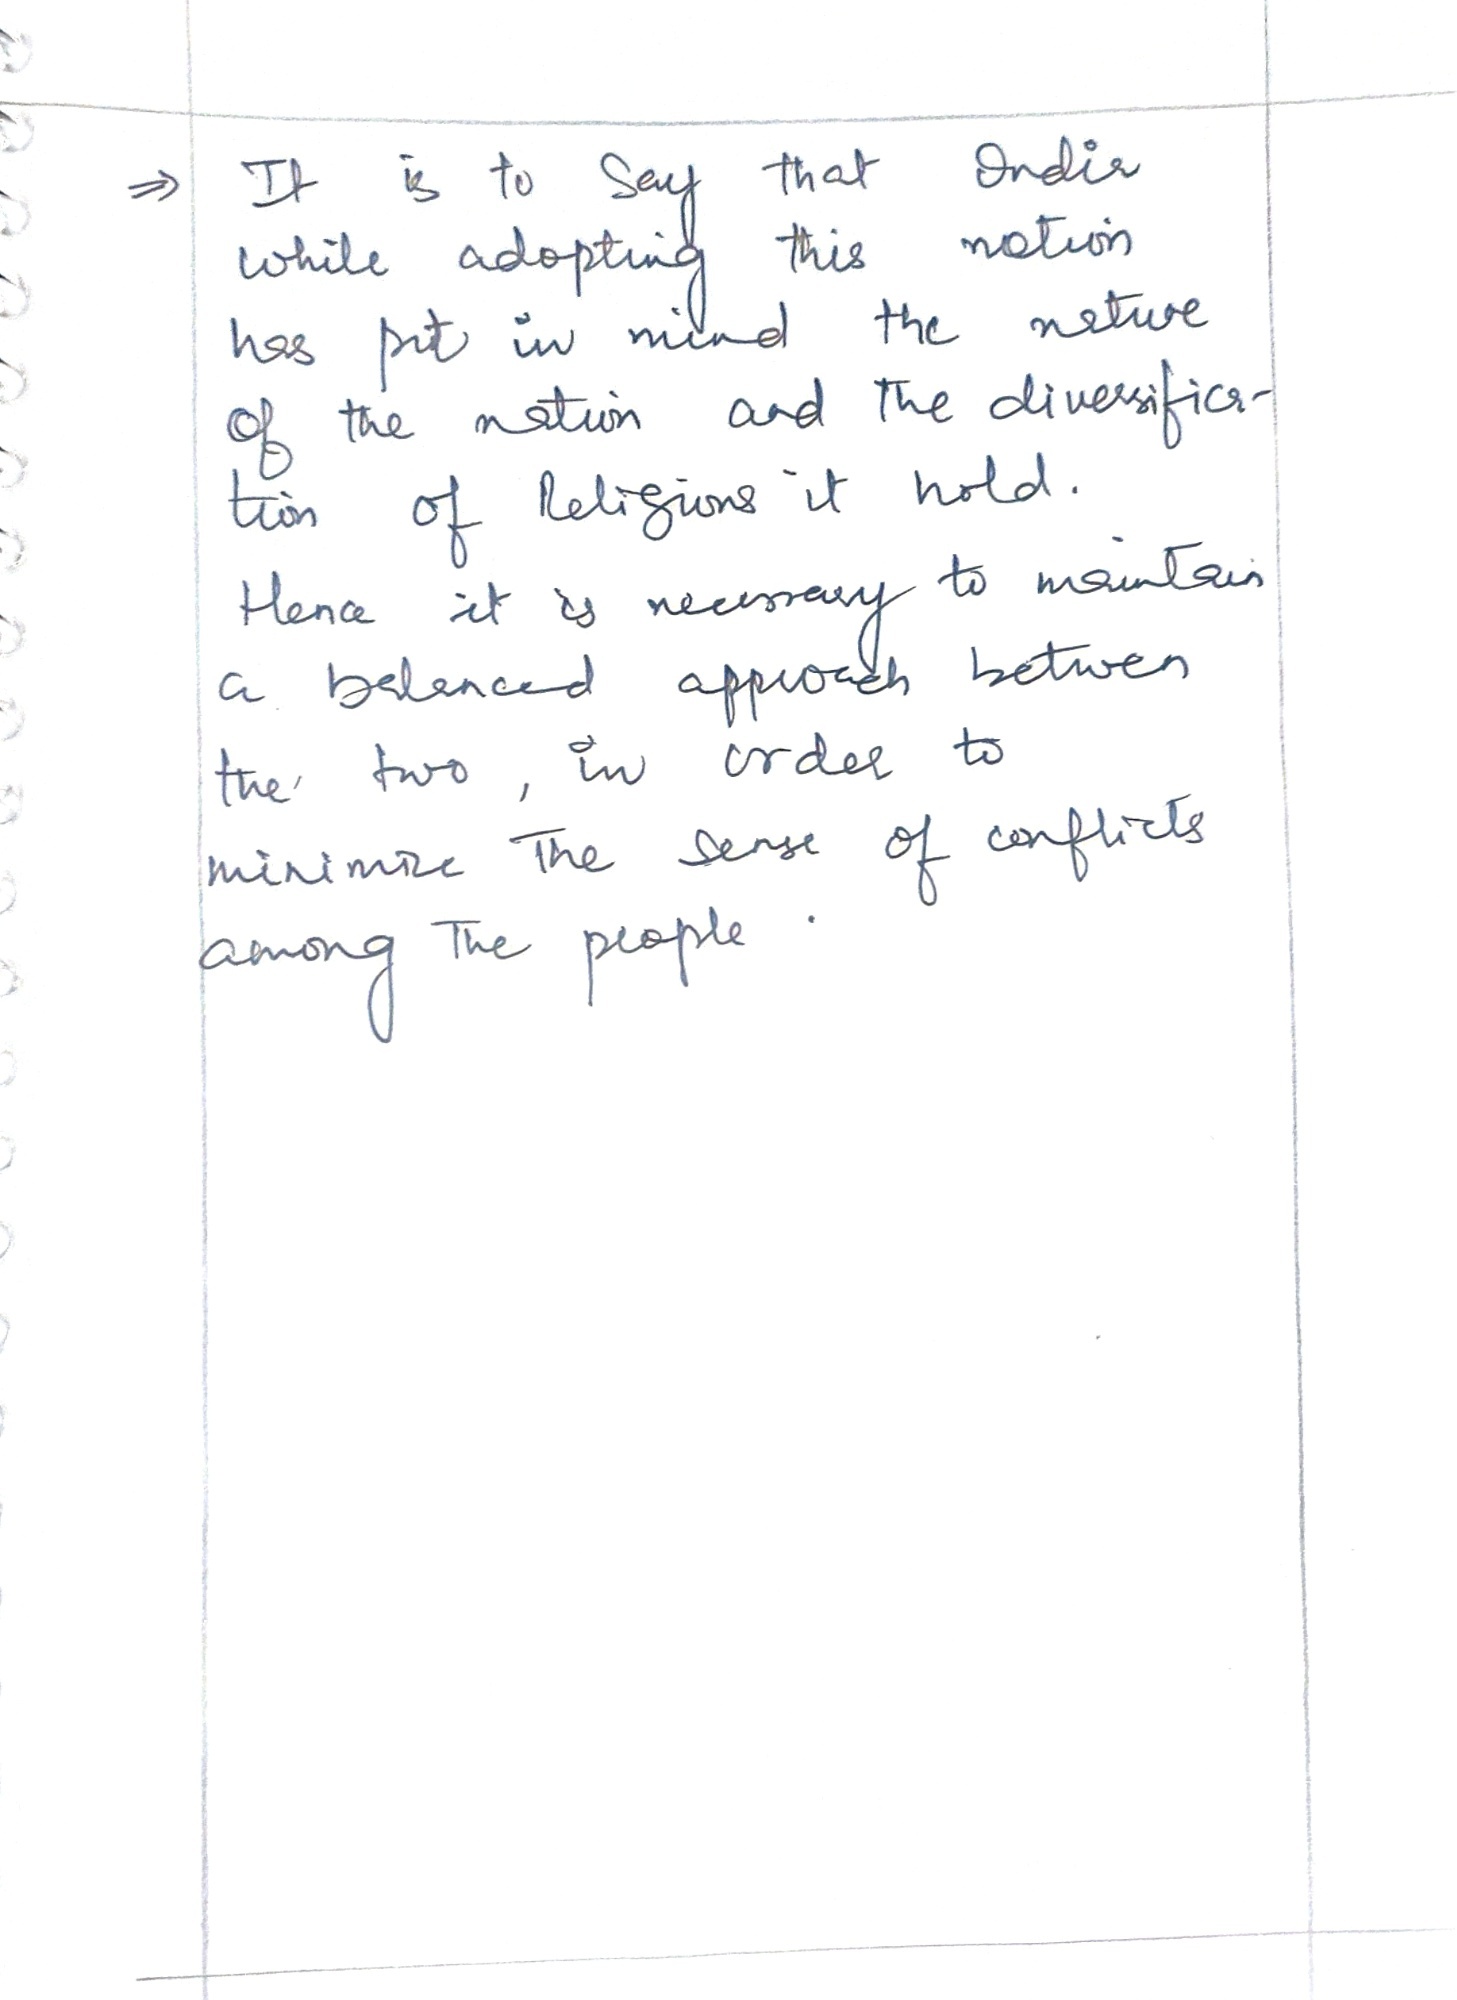 ⇒ It is to Say that India
while adopting this notion
has put in mind the nature
of the nation and the diversifica-
tion of Religions it hold.
Hence it is necessary to maintain
a balanced approach between
the two, in order to
minimize the sense of conflicts
among the people.